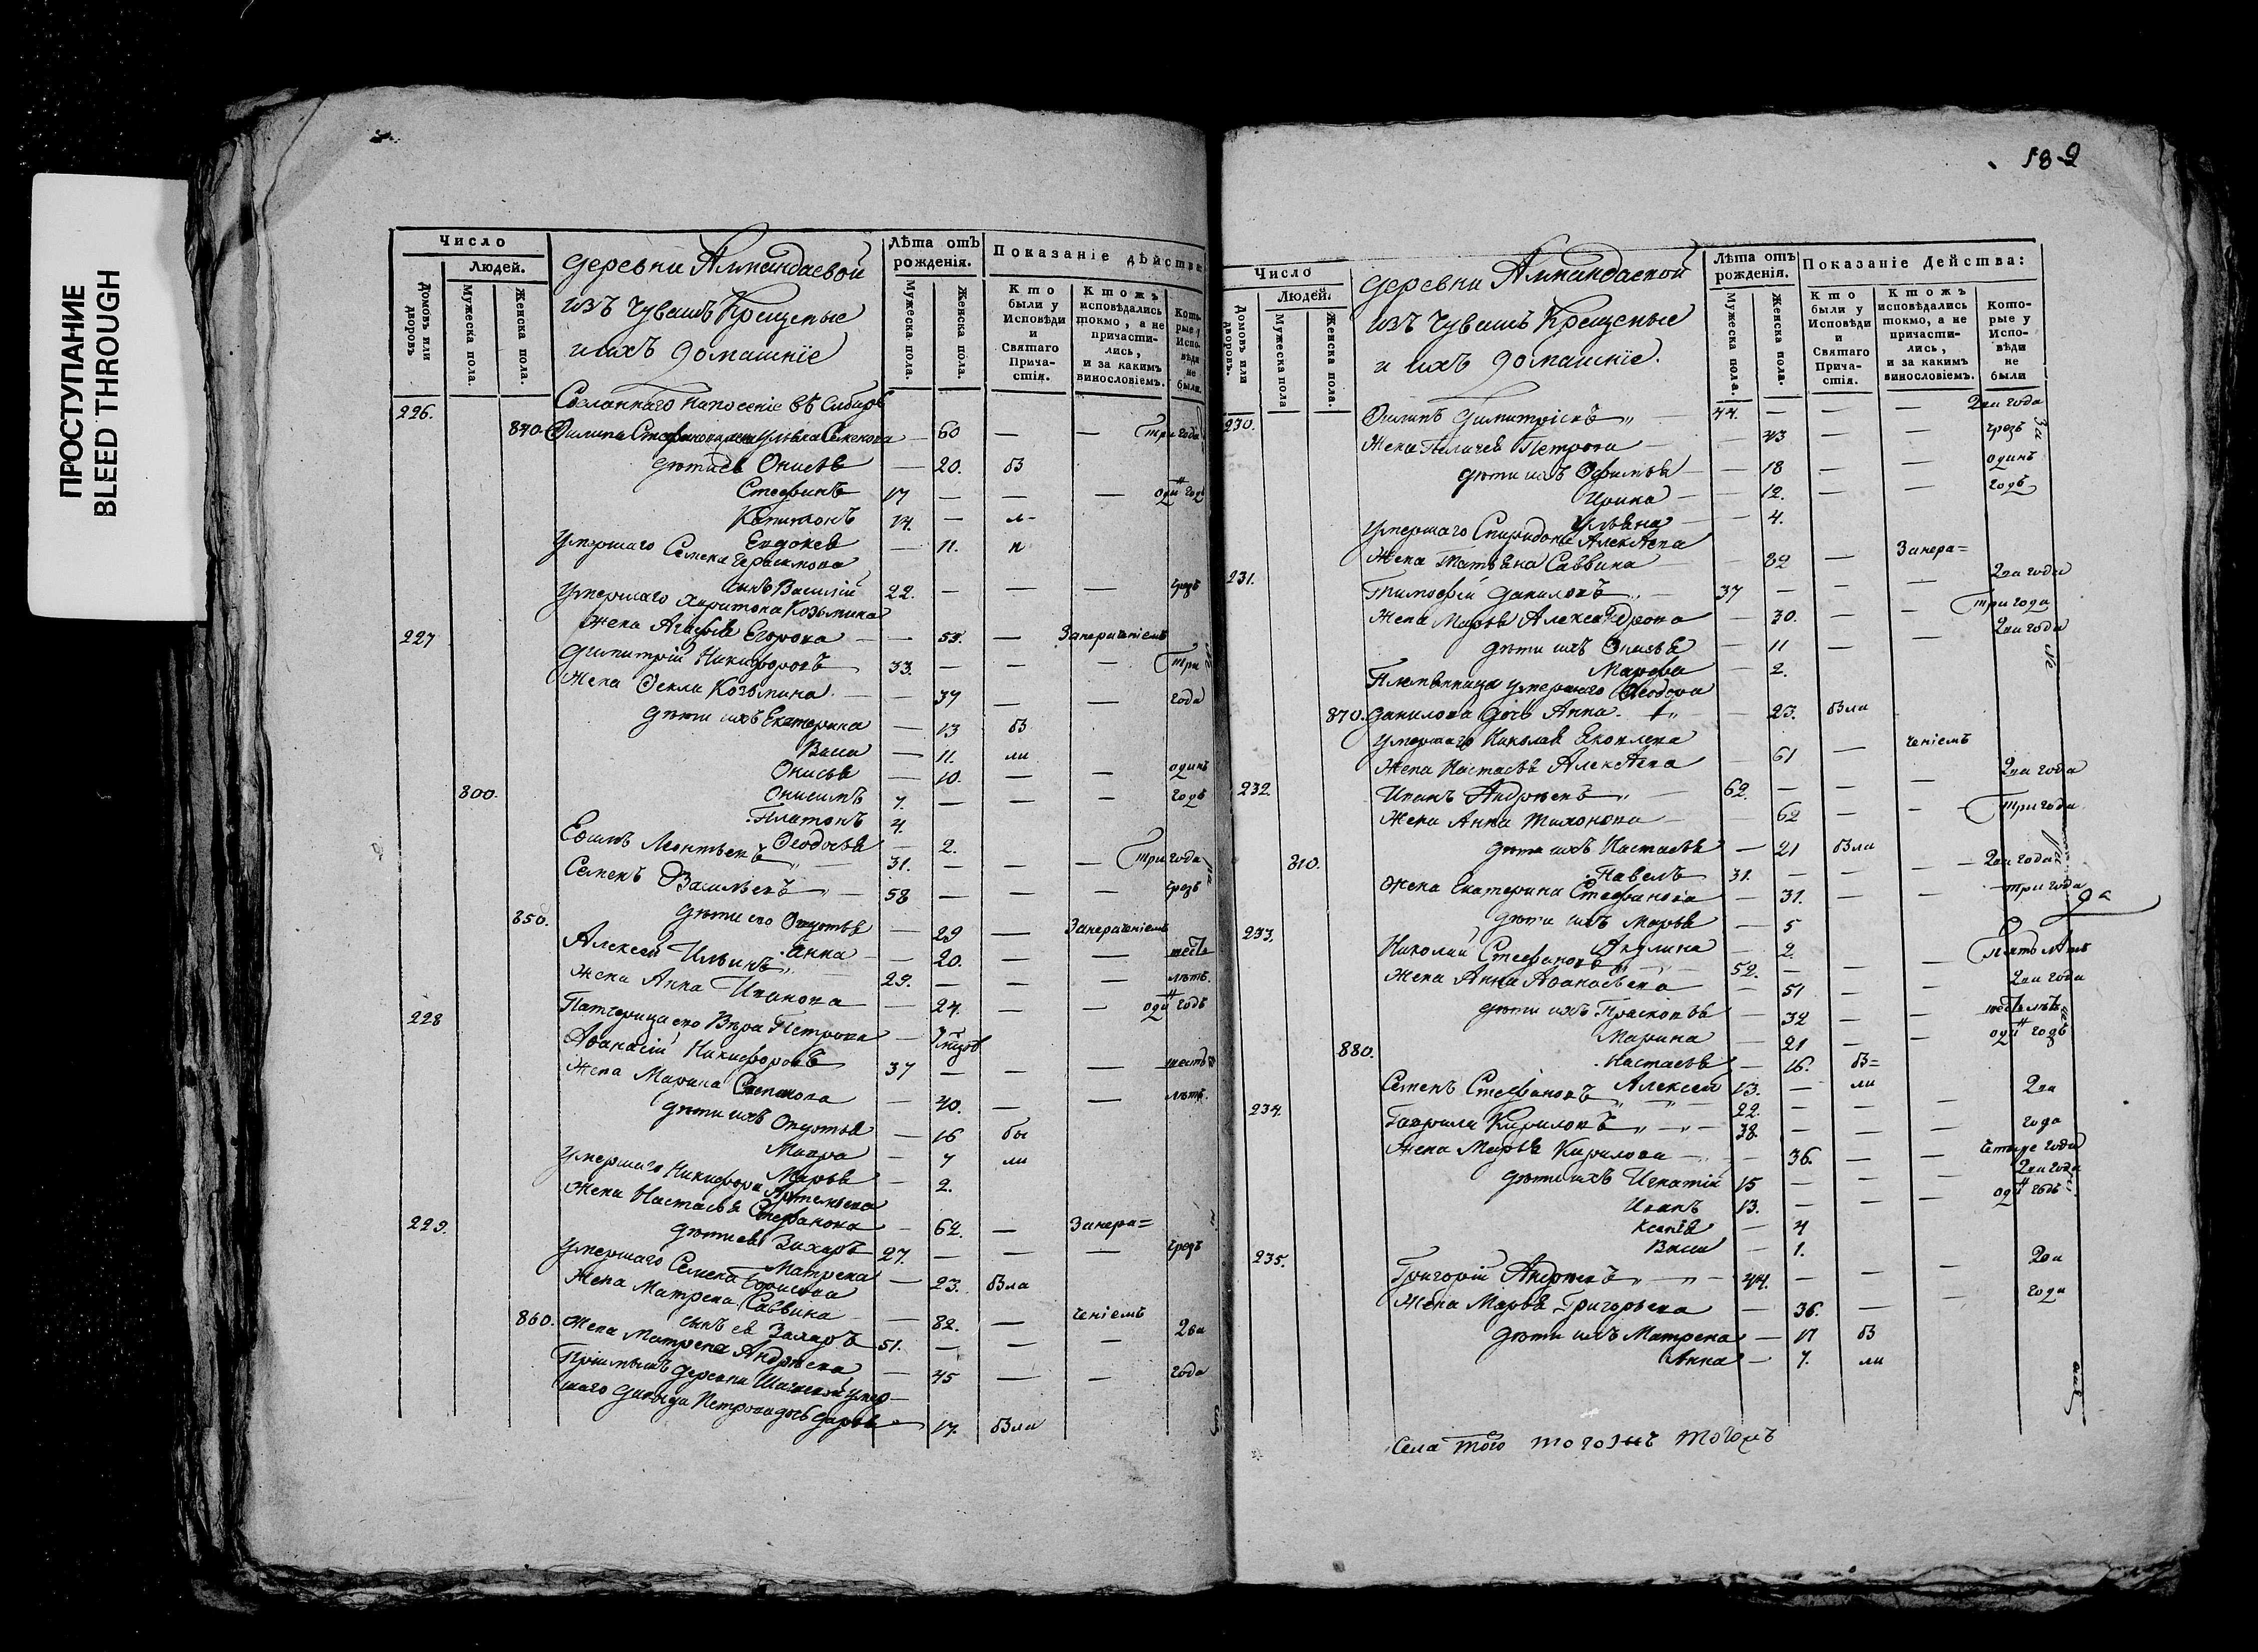 ПРОСТУПАНИЕ
BLEED THROUGH
182
Число
Людей.
Домовъ или дворовъ.
Мужеска пола.
Женска пола.
деревни Алмандаевой
изъ Чувашъ Крещеные
и ихъ домашніе
Лѣта отъ рожденія.
Мужеска пола.
Женска пола.
Показаніе дѣйства
Кто были у Исповѣди и Святаго Причастія.
Ктожъ исповѣдались токмо, а не причастились, и за какимъ винословіемъ.
Которые у Исповѣди не были.
Сосланнаго на поселеніе въ Сибирь
226. 840. Филипа Стефанова жена Ульяна Семенова — 60 — — три года
дѣти ея Онисья — 20. бы
Стефанъ 17 — — — одинъ годъ
Капитонъ 14. — л
Евдокея — 11. и
Умершаго Семена Герасимова
сынъ Василій 22. — — — чрезъ
Умершаго Харитона Козьмина
жена Агафья Егорова — — 53. — За нерач́еніемъ
227 Димитрій Никифоровъ 33. — — — три
Жена Фекла Козьмина — 37 — — года
дѣти ихъ Екатерина — 13 бы
Васса — 11. ли
Онисья — 10. — — одинъ
800. Онисимъ 7. — — — годъ
Платонъ 4.
Феодосья — 2.
Ефимъ Леонтьевъ 31. — — три года
Семенъ Васильевъ 58 — — — чрезъ
850. дѣти его Огутья — 29 — За нераченіемъ
Анна — 20. — — шесть
Алексей Ильинъ 29. — — — лѣтъ.
Жена Анна Иванова — 24. — — одинъ годъ
Патчерица его Вѣра Петрова —
228 Афанасій Никифоровъ 37 — — — шесть
Жена Марина Степанова — 40. — — лѣтъ.
дѣти ихъ Огутья — 16 бы
Мавра — 7 ли
Марья — 2.
Умершаго Никифора Артемьева
Жена Настасья Стефанова — 62. — За нера=
229. дѣти ея Захаръ 27. — — — чрезъ
Матрена — 23. была
Умершаго Семена Борисова
Жена Матрена Саввина — 82. — ченіемъ
сынъ ея Захаръ 51. — — два
860. Жена Матрена Андрѣева — 45 — — года
Пріимышъ деревни умер-
шаго Давыда Петрова дочь Дарья 17. была
Число
Людей.
Домовъ или дворовъ.
Мужеска пола
Женска пола.
деревни Алмандаевой
изъ Чувашъ Крещеные
и ихъ домашніе.
Лѣта отъ рожденія.
Мужеска пола.
Женска пола.
Показаніе Действа:
Кто были у Исповѣди и Святаго Причастія.
Ктожъ исповѣдались токмо, а не причастились, и за какимъ винословіемъ.
Которые у Исповѣди не были
230. Филипъ Димитріевъ 44. — — — два года
Жена Пелагея Петрова — 43 — — чрезъ
дѣти ихъ Офимья — 18 — — одинъ
Ирина — 12. — — годъ
Ульяна — 4.
Умершаго Спиридона Алексѣева
Жена Татьяна Саввина — 82 — За нера=
231. Тимофей Даниловъ 37 — — — два года
Жена Марья Александрова — 30. — — три года
дѣти ихъ Онисья — 11 — — два года
Марфа — 2.
Племянница умершаго Феодора
870. Данилова дочь Анна — 23. была
Умершаго Николая Яковлева
Жена Настасья Алексѣева 61 — ченіемъ
232. Иванъ Андрѣевъ 62. — — — два года
Жена Анна Тихонова — 62 — — три года
дѣти ихъ Настасья — 21 была
810. Павелъ 31. — — — два года
Жена Екатерина Стефанова — 31. — — три года
дѣти ихъ Марья — 5
Акулина — 2.
233. Николай Стефановъ 52. — — — пять лѣтъ
Жена Анна Афанасьева — 51 — — два года
дѣти ихъ Прасковья — 32 — — шесть лѣтъ
Марина — 21 — — одинъ годъ
880. Настасья — 16. бы=
Алексей 13. — ли
Семенъ Стефановъ 22. — — — два
234. Гаврила Кириловъ 38. — — — года
Жена Марья Кирилова — 36. — — четыре года
дѣти ихъ Игнатій 15 — — — два года
Иванъ 13. — — — одинъ годъ
Ксенія — 4
Васса — 1.
235. Григорій Андрѣевъ 44. — — — два
Жена Марья Григорьева — 36. — — года
дѣти ихъ Матрена — 17 бы
Анна — 7. ли
Села того